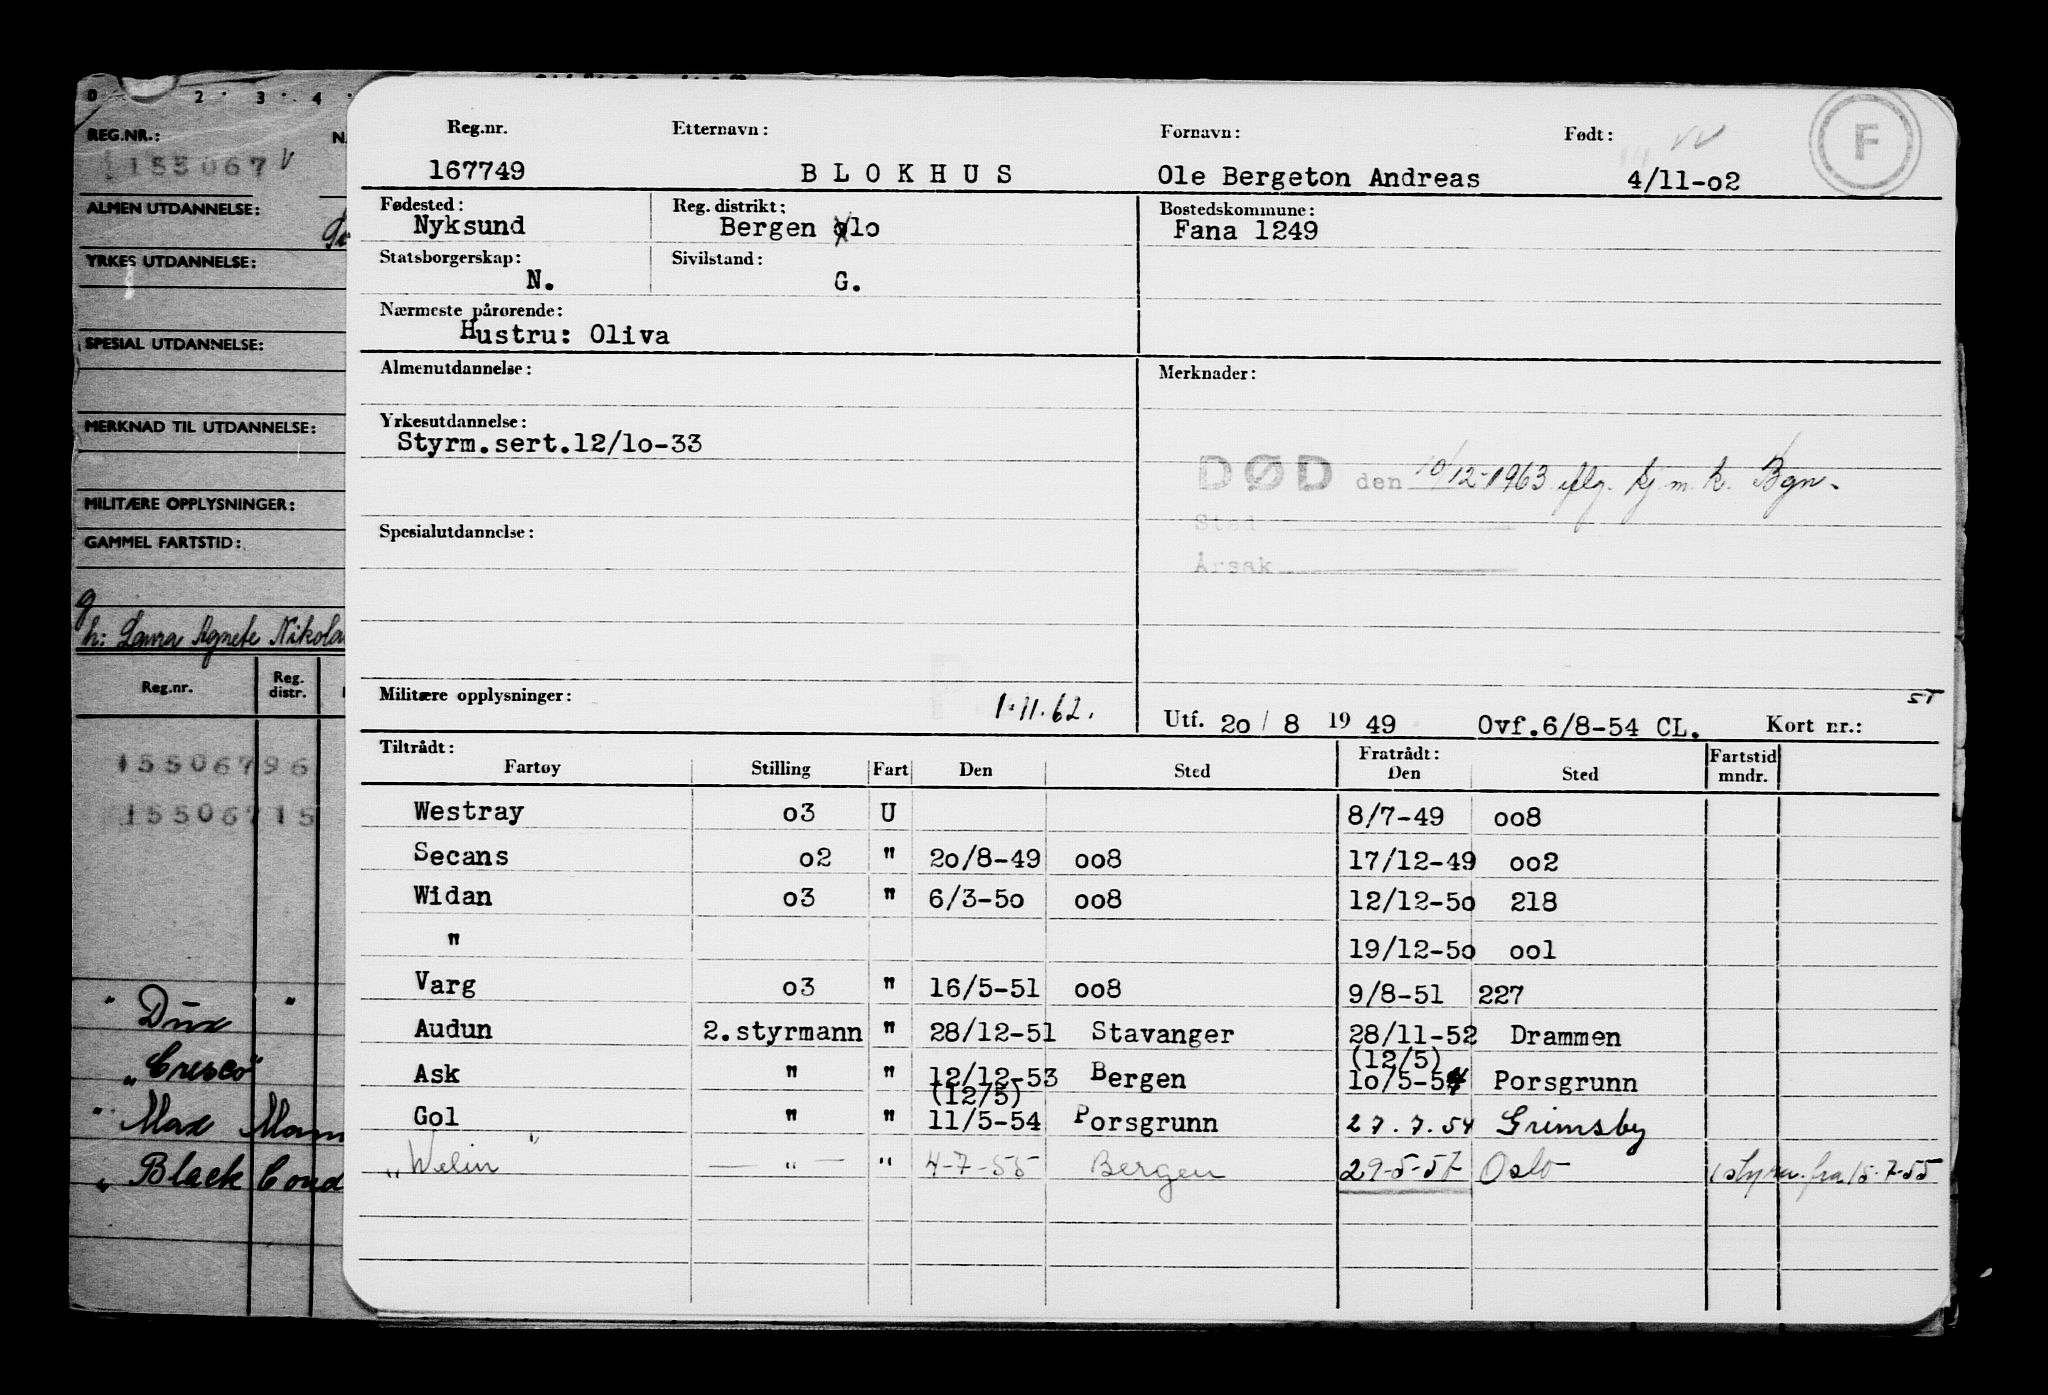 D 2 · 3 · 4 ·
REG.NR.:
155067 V
ALMEN UTDANNELSE:
YRKES UTDANNELSE:
SPESIAL UTDANNELSE:
MERKNAD TIL UTDANNELSE:
MILITÆRE OPPLYSNINGER:
GAMMEL FARTSTID:
g
h: Laura Agnete Nikola
Reg.nr. Reg. distr.
15506796
15506715
" Dux "
"Cresco"
" Max Mam
" Black Cond
Reg.nr. Etternavn: Fornavn: Født: F
167749 BLOKHUS Ole Bergeton Andreas 4/11-o2
Fødested: Reg. distrikt: Bostedskommune:
Nyksund Bergen olo Fana 1249
Statsborgerskap: Sivilstand:
N. G.
Nærmeste pårørende:
Hustru: Oliva
Almenutdannelse: Merknader:
Yrkesutdannelse:
Styrm.sert.12/1o-33
DØD den 10/12-1963 iflg. kj.m.k. Bgn.
Sted
Årsak
Spesialutdannelse:
Militære opplysninger: 1.11.62.
Utf. 2o / 8 19 49 Ovf.6/8-54 CL. Kort nr.: ST
Tiltrådt: Fratrådt: Fartstid
Fartøy Stilling Fart Den Sted Den Sted mndr.
Westray o3 U 8/7-49 oo8
Secans o2 " 2o/8-49 oo8 17/12-49 oo2
Widan o3 " 6/3-5o oo8 12/12-5o 218
" 19/12-5o oo1
Varg o3 " 16/5-51 oo8 9/8-51 227
Audun 2.styrmann " 28/12-51 Stavanger 28/11-52 Drammen
(12/5)
Ask " " 12/12-53 Bergen 1o/5-54 Porsgrunn
(12/5)
Gol " " 11/5-54 Porsgrunn 27.7.54 Grimsby
"Welin" — " — " 4-7-55 Bergen 29-5-57 Oslo 1 styrm. fra 15-7-55